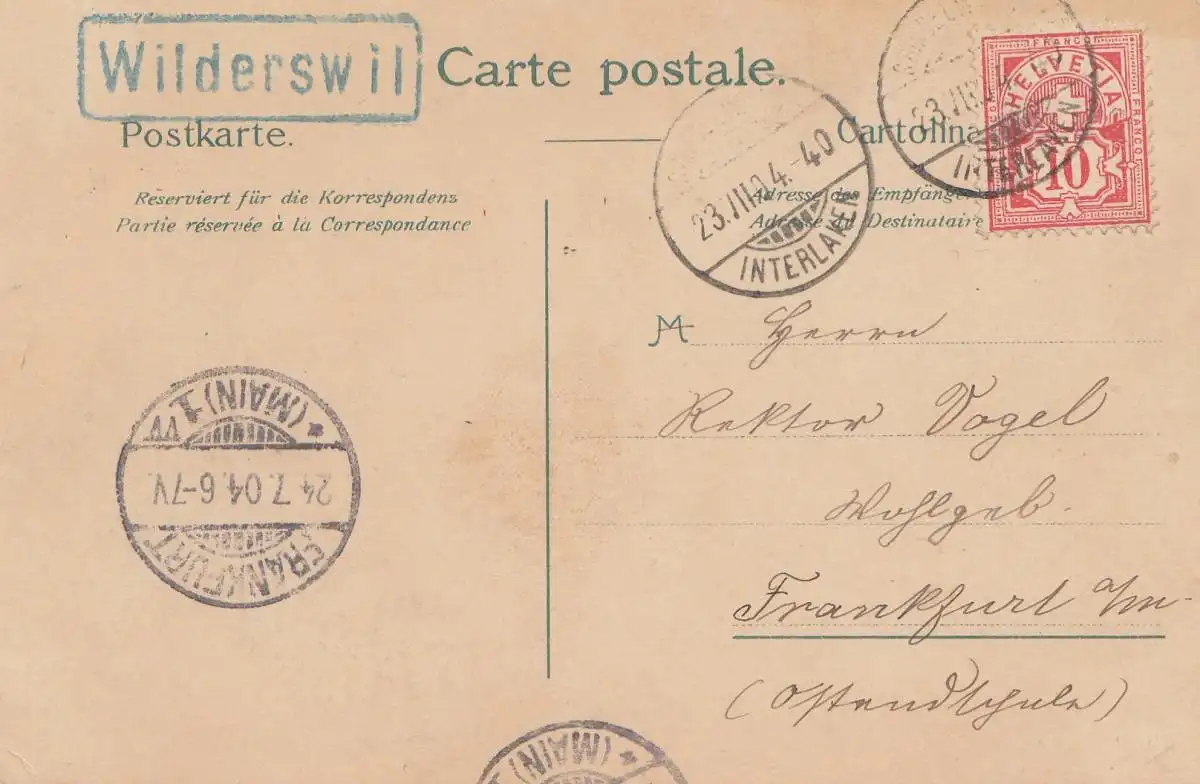 Wilderswil
Carte postale.
Postkarte.
Cartolina
Reserviert für die Korrespondenz
Partie réservée à la Correspondance
Adresse des Empfänger
Adresse du Destinataire
FRANCO
HELVETIA
FRANCO
10
INTERLAKEN
23.VII.04.-40
INTERLAKEN
Herrn
Rektor Vogel
Wohlgeb.
Frankfurt a/m-
(Ostendschule)
FRANKFURT
24.7.04.6-7V.
* (MAIN) 1 VV
* (MAIN) 1